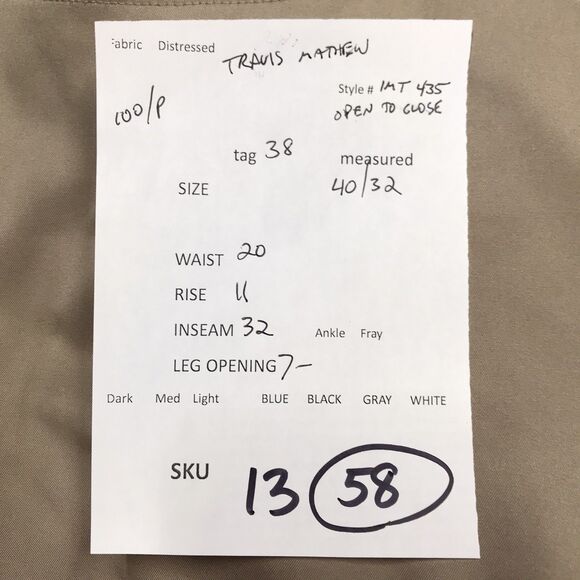 Fabric Distressed TRAVIS MATHEW
100/P
Style # 1MT 435
OPEN TO CLOSE
tag 38 measured
SIZE 40/32
WAIST 20
RISE 11
INSEAM 32 Ankle Fray
LEG OPENING 7-
Dark Med Light BLUE BLACK GRAY WHITE
SKU 13 58